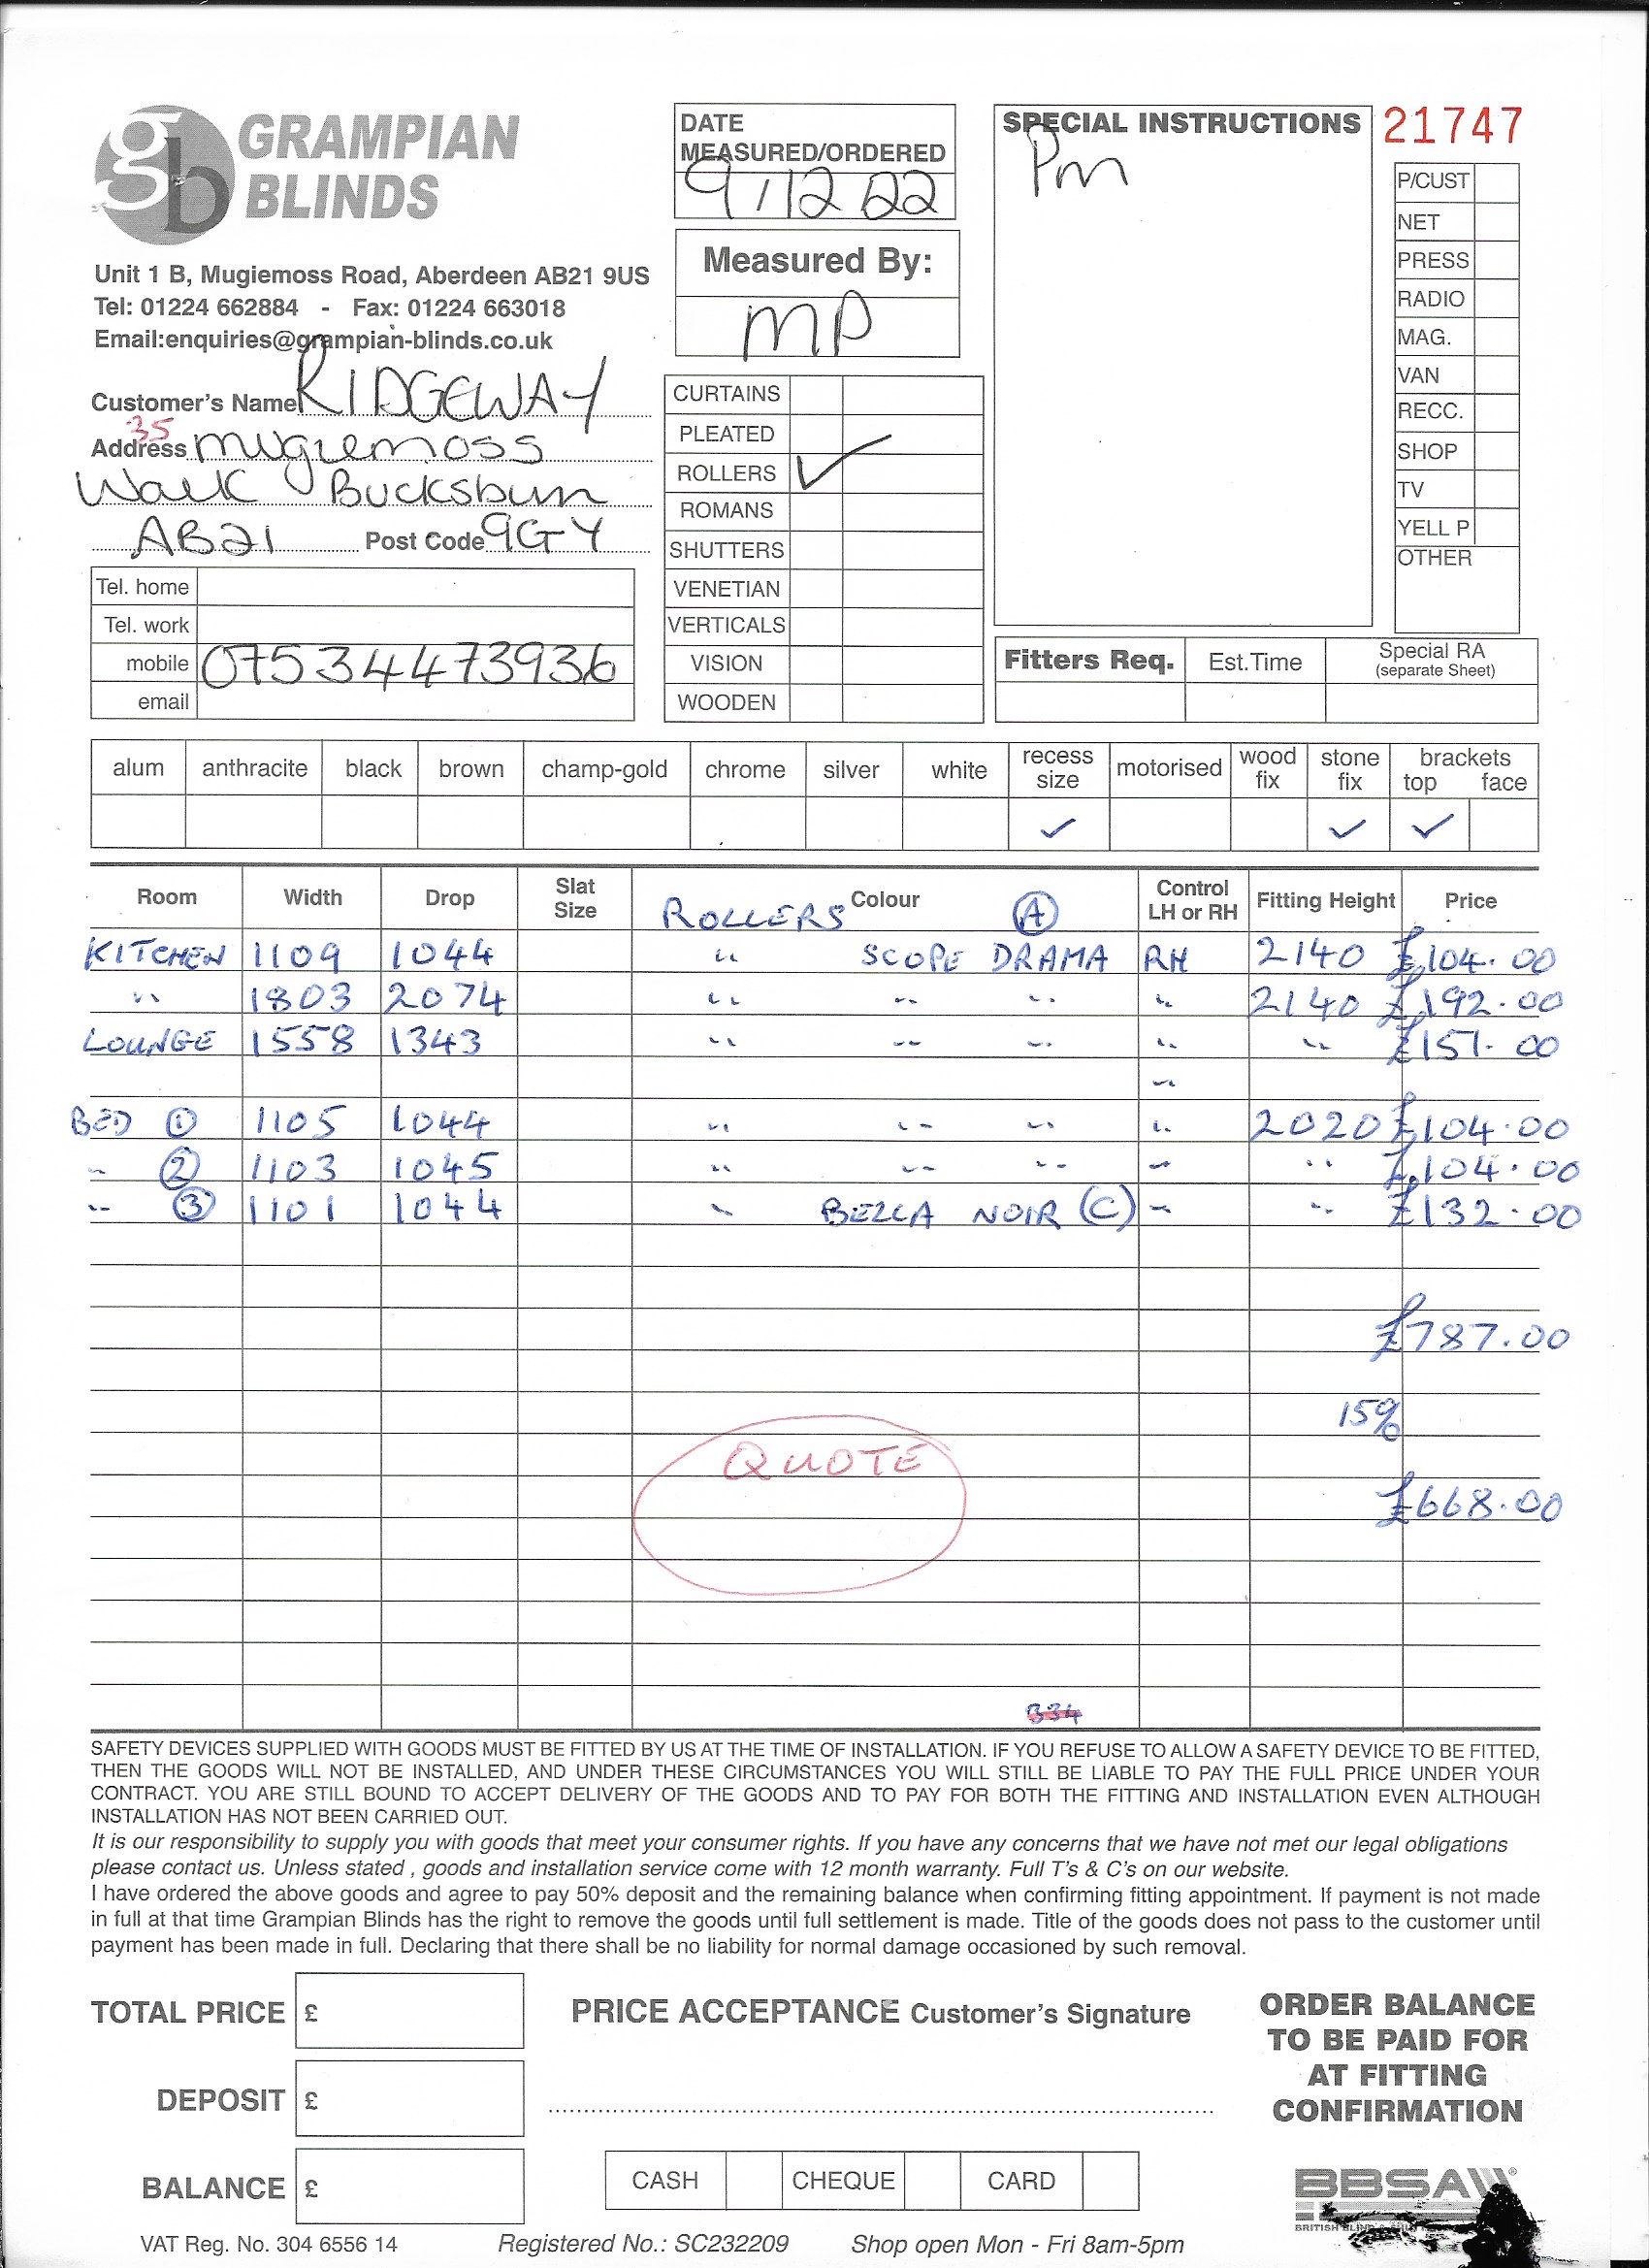 gb GRAMPIAN
BLINDS
Unit 1 B, Mugiemoss Road, Aberdeen AB21 9US
Tel: 01224 662884 - Fax: 01224 663018
Email:enquiries@grampian-blinds.co.uk
Customer's Name RIDGEWAY
35
Address Mugiemoss
Walk Bucksburn
AB21 Post Code 9GY
Tel. home
Tel. work
mobile 07534473936
email
DATE
MEASURED/ORDERED
9/12 22
Measured By:
MP
CURTAINS
PLEATED
ROLLERS ✓
ROMANS
SHUTTERS
VENETIAN
VERTICALS
VISION
WOODEN
SPECIAL INSTRUCTIONS
Pm
21747
P/CUST
NET
PRESS
RADIO
MAG.
VAN
RECC.
SHOP
TV
YELL P
OTHER
Fitters Req. Est.Time Special RA
(separate Sheet)
alum anthracite black brown champ-gold chrome silver white recess size motorised wood fix stone fix brackets top face
✓ ✓ ✓
Room Width Drop Slat Size Colour Control LH or RH Fitting Height Price
ROLLERS (A)
KITCHEN 1109 1044 " SCOPE DRAMA RH 2140 £104.00
" 1803 2074 " " " " 2140 £192.00
LOUNGE 1558 1343 " " " " " £151.00
"
BED (1) 1105 1044 " " " " 2020 £104.00
" (2) 1103 1045 " " " " " £104.00
" (3) 1101 1044 " BELLA NOIR (C) " " £132.00
£787.00
15%
QUOTE
£668.00
334
SAFETY DEVICES SUPPLIED WITH GOODS MUST BE FITTED BY US AT THE TIME OF INSTALLATION. IF YOU REFUSE TO ALLOW A SAFETY DEVICE TO BE FITTED,
THEN THE GOODS WILL NOT BE INSTALLED, AND UNDER THESE CIRCUMSTANCES YOU WILL STILL BE LIABLE TO PAY THE FULL PRICE UNDER YOUR
CONTRACT. YOU ARE STILL BOUND TO ACCEPT DELIVERY OF THE GOODS AND TO PAY FOR BOTH THE FITTING AND INSTALLATION EVEN ALTHOUGH
INSTALLATION HAS NOT BEEN CARRIED OUT.
It is our responsibility to supply you with goods that meet your consumer rights. If you have any concerns that we have not met our legal obligations
please contact us. Unless stated , goods and installation service come with 12 month warranty. Full T's & C's on our website.
I have ordered the above goods and agree to pay 50% deposit and the remaining balance when confirming fitting appointment. If payment is not made
in full at that time Grampian Blinds has the right to remove the goods until full settlement is made. Title of the goods does not pass to the customer until
payment has been made in full. Declaring that there shall be no liability for normal damage occasioned by such removal.
TOTAL PRICE £
DEPOSIT £
BALANCE £
PRICE ACCEPTANCE Customer's Signature
CASH CHEQUE CARD
ORDER BALANCE
TO BE PAID FOR
AT FITTING
CONFIRMATION
BBSA
BRITISH
VAT Reg. No. 304 6556 14 Registered No.: SC232209 Shop open Mon - Fri 8am-5pm